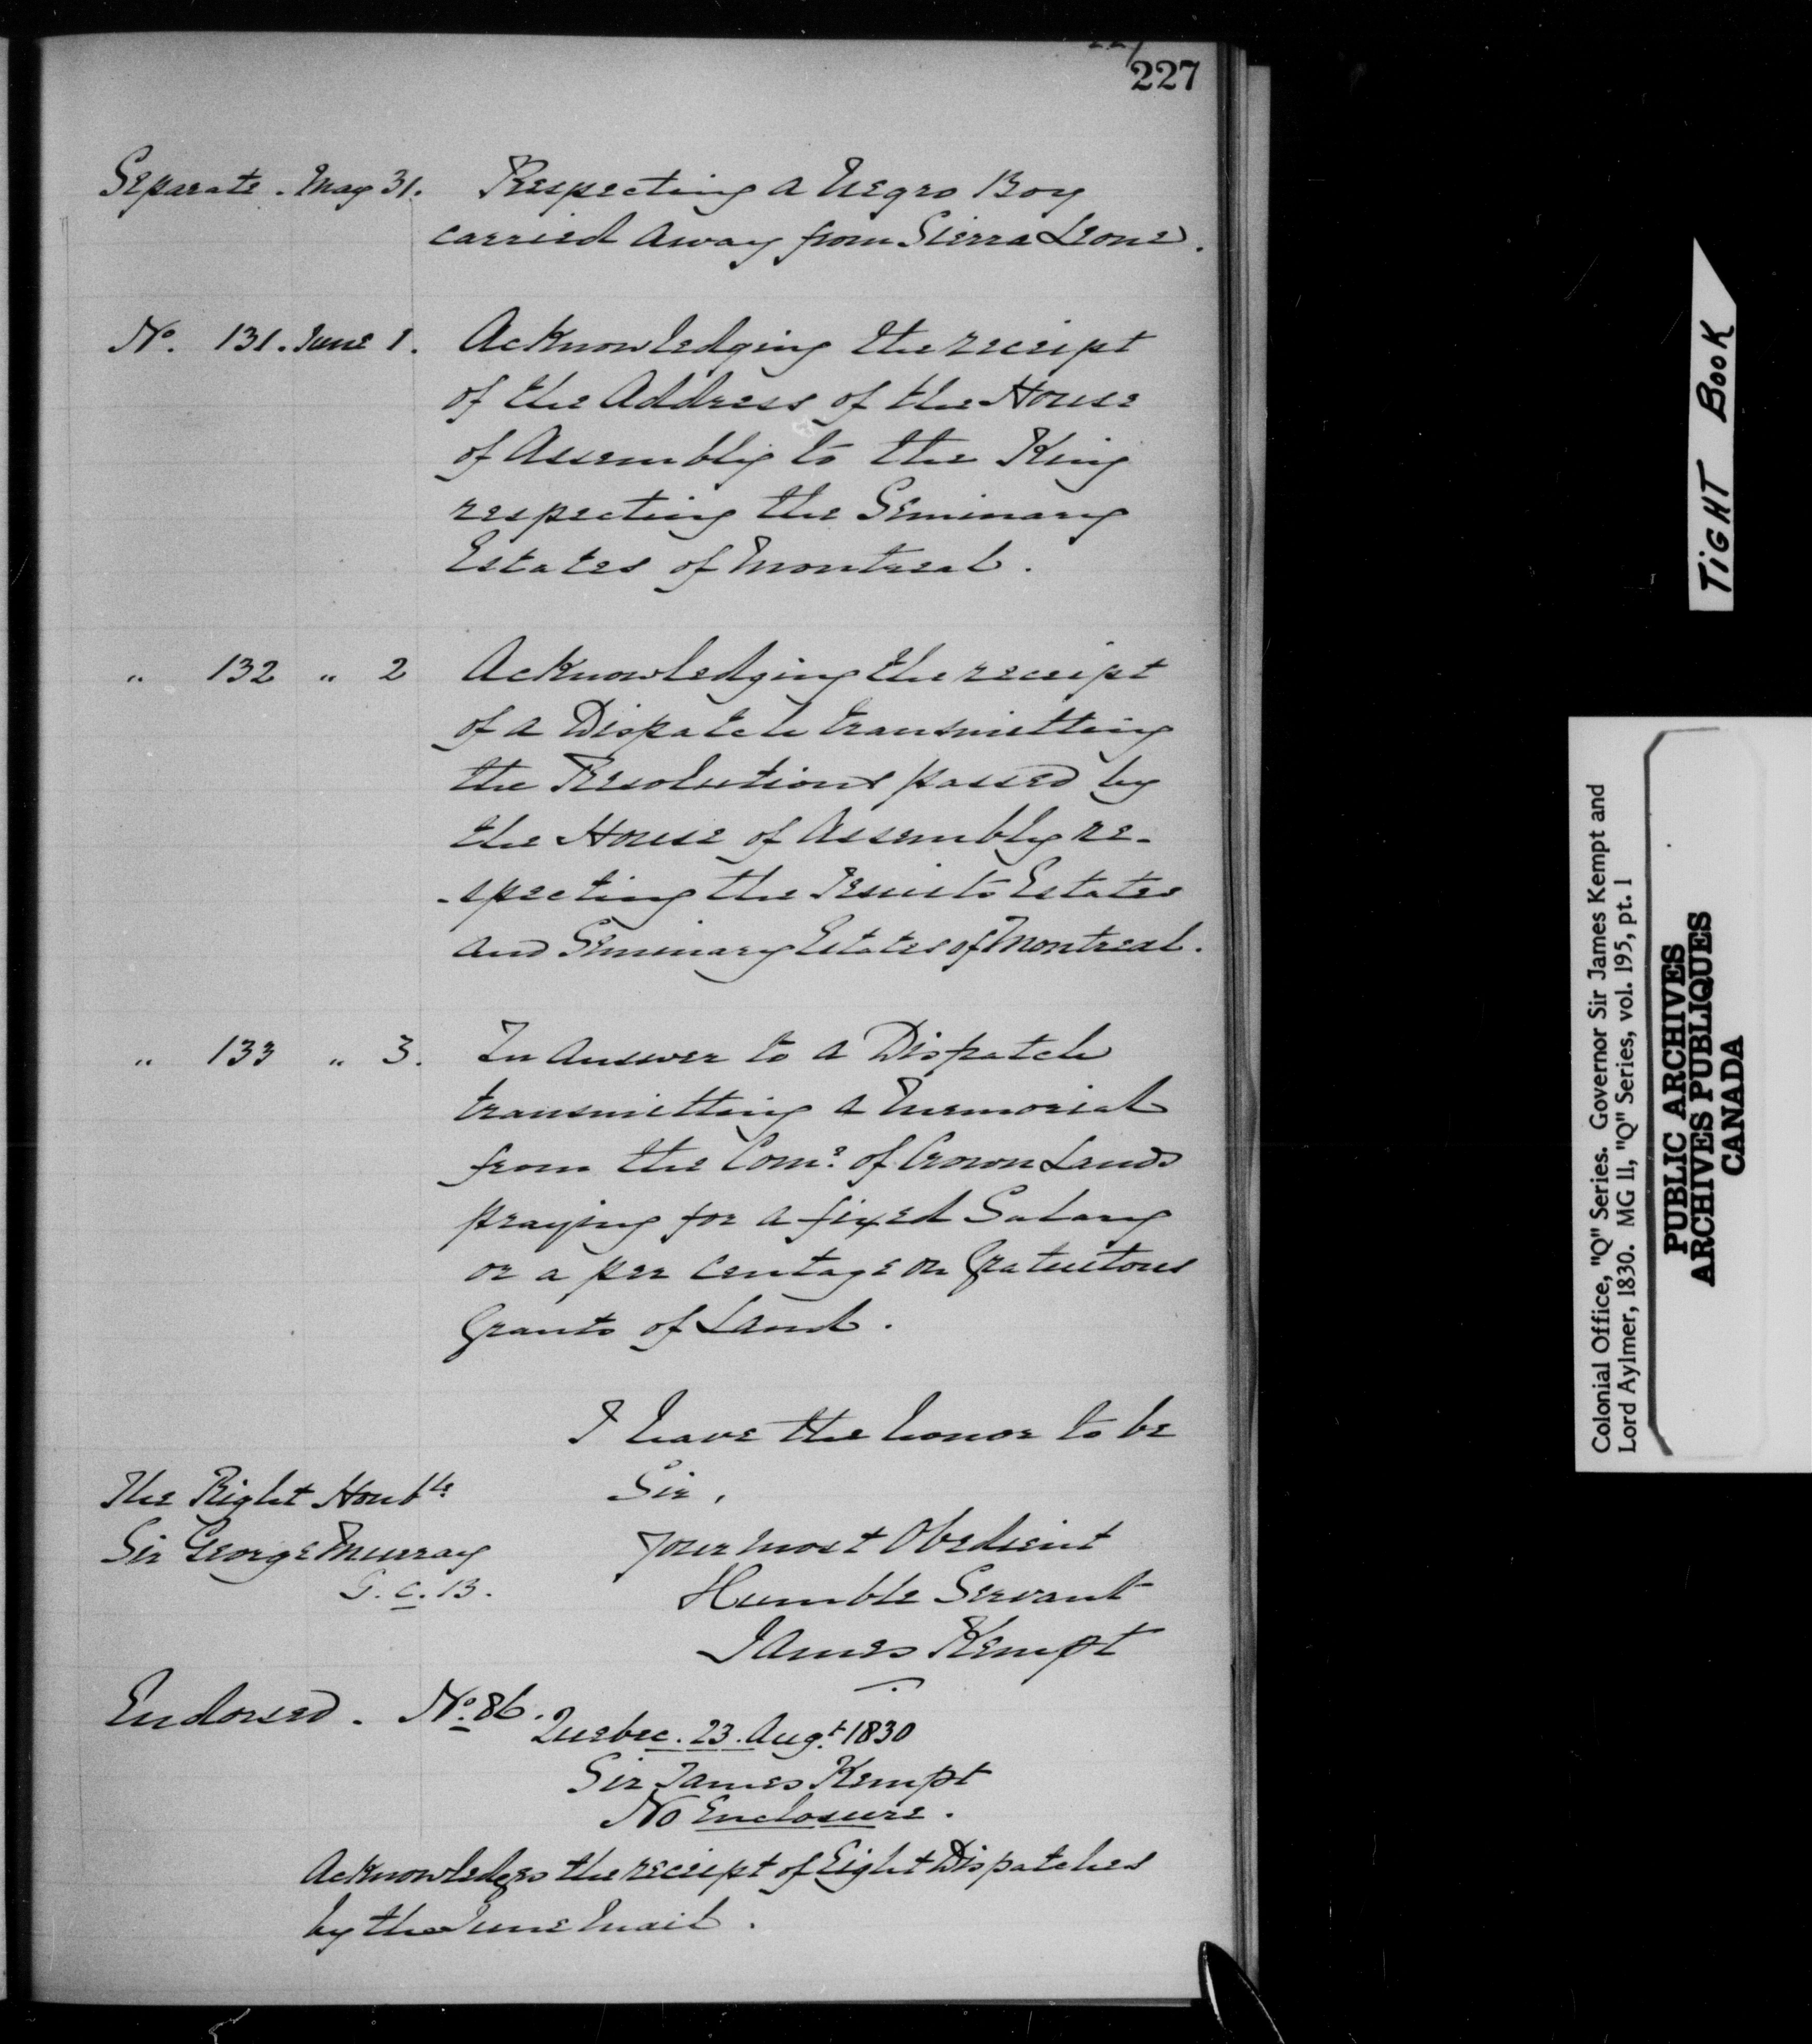 227
Separate. May 31. Respecting a Negro Boy
carried away from Sierra Leone.
No. 131. June 1. Acknowledging the receipt
of the Address of the House
of Assembly to the King
respecting the Seminary
Estates of Montreal.
" 132 " 2 Acknowledging the receipt
of a Dispatch transmitting
the Resolutions passed by
the House of Assembly re-
-specting the Jesuits Estates
and Seminary Estates of Montreal.
" 133 " 3. In answer to a Dispatch
transmitting a Memorial
from the Comr. of Crown Lands
praying for a fixed Salary
or a per centage on Gratuitous
Grants of Land.
I have the honor to be
Sir,
The Right Honble
Sir George Murray
G.C.B.
Your most Obedient
Humble Servant
James Kempt
Endorsed. No. 86.
Quebec. 23. Augt. 1830
Sir James Kempt
No Enclosure.
Acknowledges the receipt of Eight Dispatches
by the June Mail.
TIGHT BOOK
Colonial Office, "Q" Series. Governor Sir James Kempt and
Lord Aylmer, 1830. MG 11, "Q" Series, vol. 195, pt. 1
PUBLIC ARCHIVES
ARCHIVES PUBLIQUES
CANADA